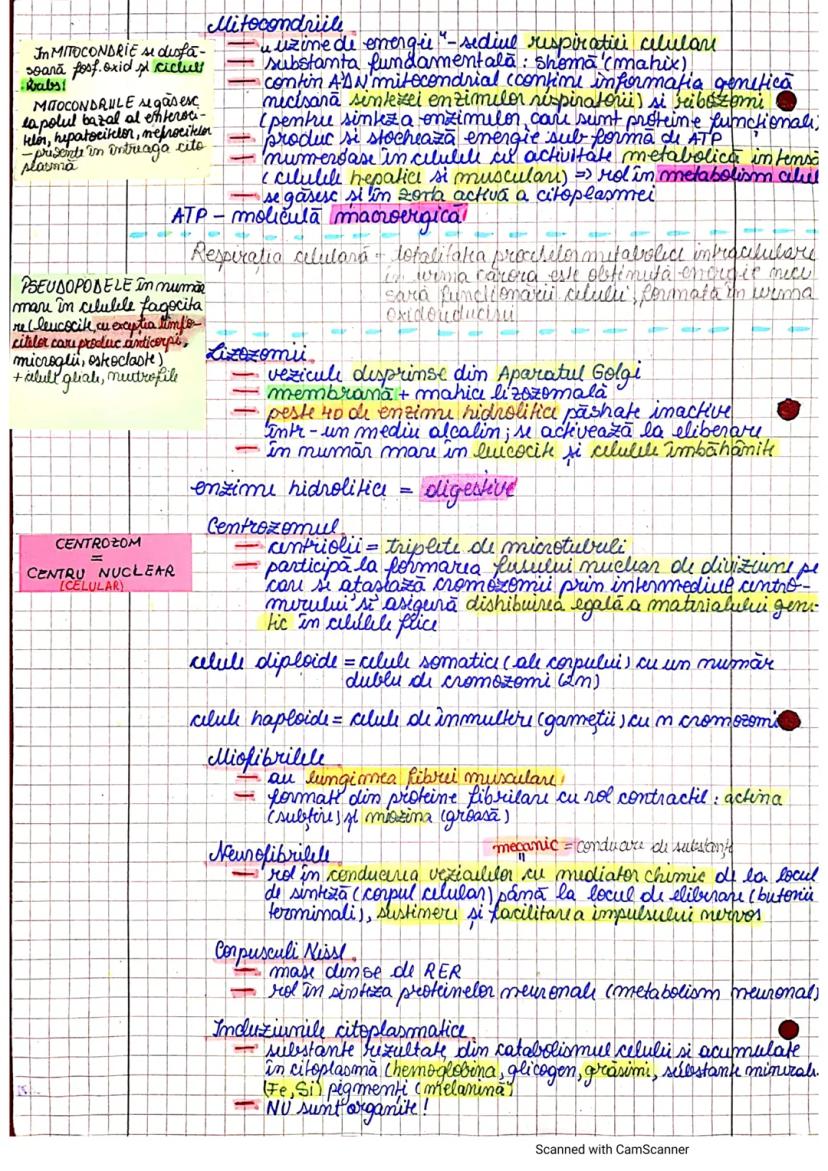 Mitocondriile
— "uzine de energie" - sediul respirației celulare
— substanța fundamentală: stromă (matrix)
— conțin ADN mitocondrial (conține informația genetică
necesară sintezei enzimelor respiratorii) și ribozomi
(pentru sinteza enzimelor, care sunt proteine funcționale)
— produc și stochează energie sub formă de ATP
— numeroase în celulele cu activitate metabolică intensă
(celulele hepatice si musculare) => rol în metabolism celul
— se găsesc și în zona activă a citoplasmei
ATP - moleculă macroergică
În MITOCONDRIE se desfă-
șoară fosf. oxid și ciclul
Krebs!
MITOCONDRIILE se găsesc
la polul bazal al enteroci-
telor, hepatocitelor, nefrocitelor
- prezente în întreaga cito
plasmă
Respirația celulară - totalitatea proceselor metabolice intracelulare
în urma cărora este obținută energie nece
sară funcționării celulei, formată în urma
oxidoreducerii
PSEUDOPODELE în număr
mare în celulele fagocita
re (leucocite, cu excepția limfo-
citelor care produc anticorpi,
microglii, osteoclaste)
+ celule gliale, neutrofile
Lizozomii
— vezicule desprinse din Aparatul Golgi
— membrană + matrice lizozomală
— peste 40 de enzime hidrolitice păstrate inactive
într-un mediu alcalin; se activează la eliberare
— în număr mare în leucocite și celulele îmbătrânite
enzime hidrolitice = digestive
CENTROZOM
=
CENTRU NUCLEAR
(CELULAR)
Centrozomul
— centriolii = triplete de microtubuli
— participă la formarea fusului nuclear de diviziune pe
care se atașează cromozomii prin intermediul centro-
merului și asigură distribuirea egală a materialului gene-
tic în celulele fiice
celule diploide = celule somatice (ale corpului) cu un număr
dublu de cromozomi (2n)
celule haploide = celule de înmulțire (gameții) cu n cromozomi
Miofibrilele
— au lungimea fibrei musculare
— formate din proteine fibrilare cu rol contractil: actina
(subțire) și miozina (groasă)
mecanic = conducere de substanțe
Neurofibrilele
— rol în conducerea veziculelor cu mediator chimic de la locul
de sinteză (corpul celular) până la locul de eliberare (butonii
terminali), susținere și facilitarea impulsului nervos
Corpusculi Nissl
— mase dense de RER
— rol în sinteza proteinelor neuronale (metabolism neuronal)
Incluziunile citoplasmatice
— substanțe rezultate din catabolismul celulei si acumulate
în citoplasmă (hemoglobina, glicogen, grăsimi, substanțe minerale
(Fe, Si) pigmenți (melanină)
— NU sunt organite!
Scanned with CamScanner